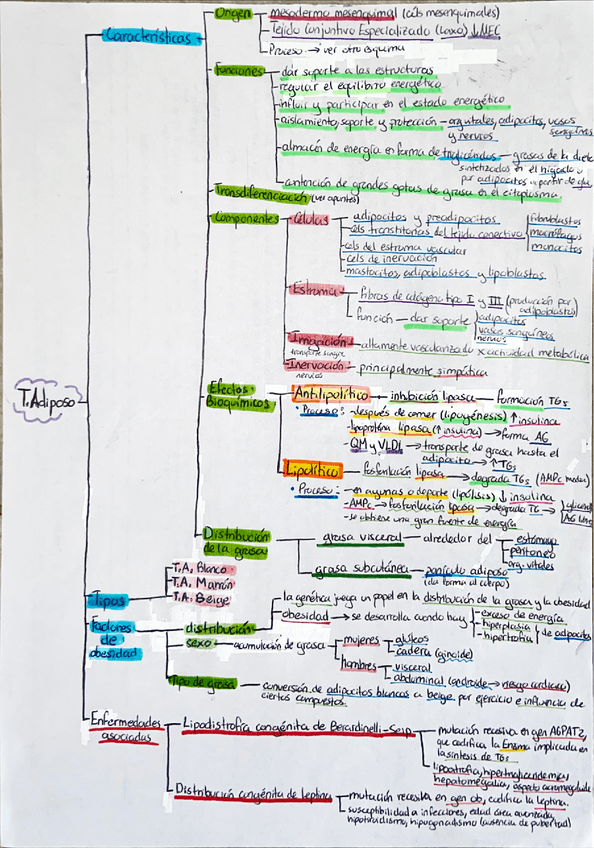 T. Adiposo
Características
Origen
mesodermo mesenquimal (céls mesenquimales)
Tejido Conjuntivo Especializado (Laxo) ↓MEC
Proceso → ver otro esquema
Funciones
dar soporte a las estructuras
regular el equilibrio energético
influir y participar en el estado energético
aislamiento, soporte y protección - órg vitales, adipocitos, vasos
sanguíneos
y nervios
almacén de energía en forma de triglicéridos - grasas de la dieta
sintetizados en el hígado o
por adipocitos a partir de
contención de grandes gotas de grasa en el citoplasma
Transdiferenciación (ver apuntes)
Componentes
Células
adipocitos y preadipocitos
céls transitorias del tejido conectivo
fibroblastos
macrófagos
monocitos
céls del estroma vascular
céls de inervación
mastocitos, adipoblastos y lipoblastos
Estroma
fibras de colágeno tipo I y III (producción por
adipoblastos)
función - dar soporte
adipocitos
vasos sanguíneos
nervios
Irrigación
transporte sangre
altamente vascularizado x actividad metabólica
Inervación
nervios
principalmente simpática
Efectos
Bioquímicos
Antilipolítico
inhibición lipasa - formación TGs
• Proceso: - después de comer (lipogénesis) ↑ insulina
- lipoproteína lipasa (↑ insulina) → forma AG
- QM y VLDL → transporte de grasa hasta el
adipocito → ↑TGs
Lipolítico
fosforilación lipasa → degrada TGs (AMPc media)
• Proceso: - en ayunas o deporte (lipólisis) ↓ insulina
- AMPc → fosforilación lipasa → degrada TG →
glicerol
AG libres
- se obtiene una gran fuente de energía
Distribución
de la grasa
grasa visceral - alrededor del
estómago
peritoneo
órg. vitales
grasa subcutánea - panículo adiposo
(da forma al cuerpo)
Tipos
T.A. Blanco
T.A. Marrón
T.A. Beige
Factores
de
obesidad
distribución
la genética juega un papel en la distribución de la grasa y la obesidad
obesidad → se desarrolla cuando hay
- exceso de energía
- hiperplasia
- hipertrofia
de adipocitos
sexo - acumulación de grasa
mujeres
glúteos
cadera (ginoide)
hombres
visceral
abdominal (androide → riesgo cardiaco)
Tipo de grasa - conversión de adipocitos blancos a beige por ejercicio e influencia de
ciertos compuestos.
Enfermedades
asociadas
Lipodistrofia congénita de Berardinelli-Seip
mutación recesiva en gen AGPAT2,
que codifica la Enzima implicada en
la síntesis de TGs
lipoatrofia, hipertrigliceridemia,
hepatomegalia, aspecto acromegaloide
Distribución congénita de leptina
mutación recesiva en gen ob, codifica la leptina.
susceptibilidad a infecciones, edad ósea avanzada,
hipotiroidismo, hipogonadismo (ausencia de pubertad)